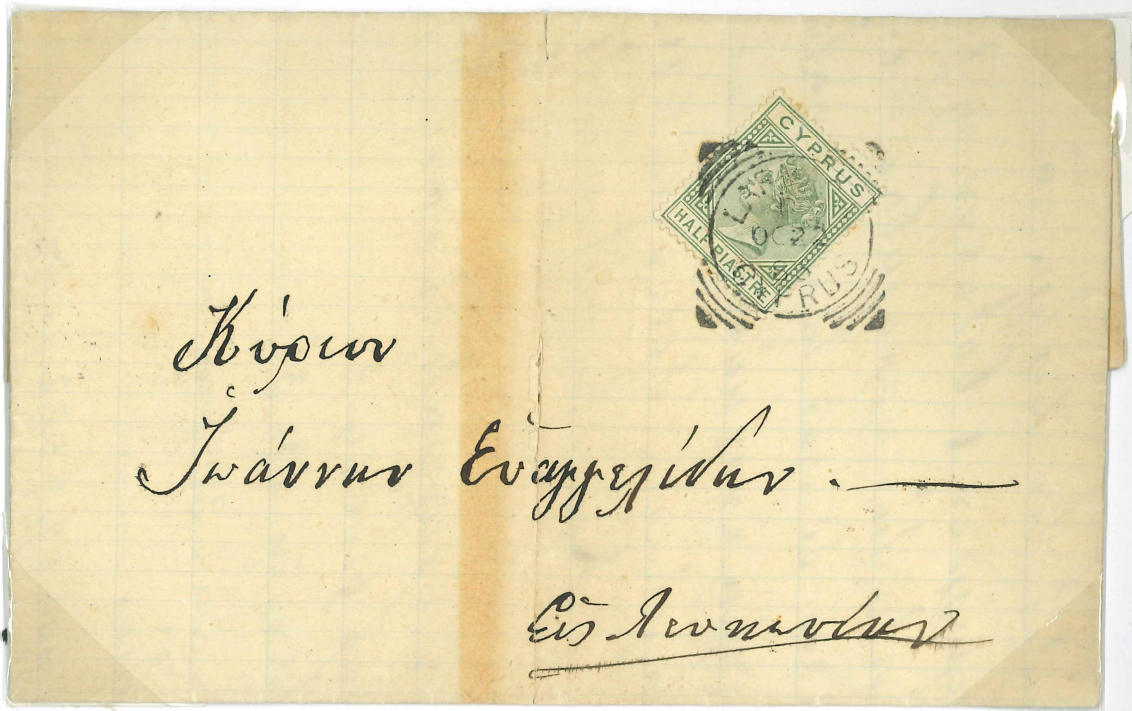 CYPRUS
HALF PIASTRE
OC 2
CYPRUS
Κύριον
Ἰωάννην Εὐαγγελίδην . —
Εἰς Λευκωσίαν